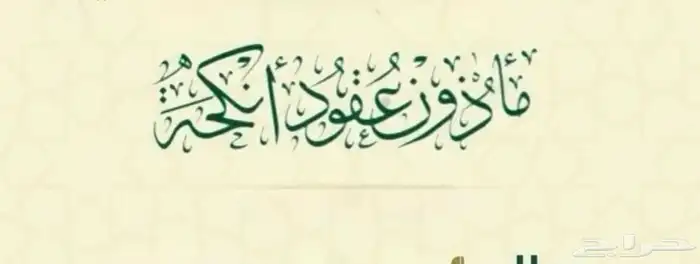 مأذون عقود أنكحة
حراج